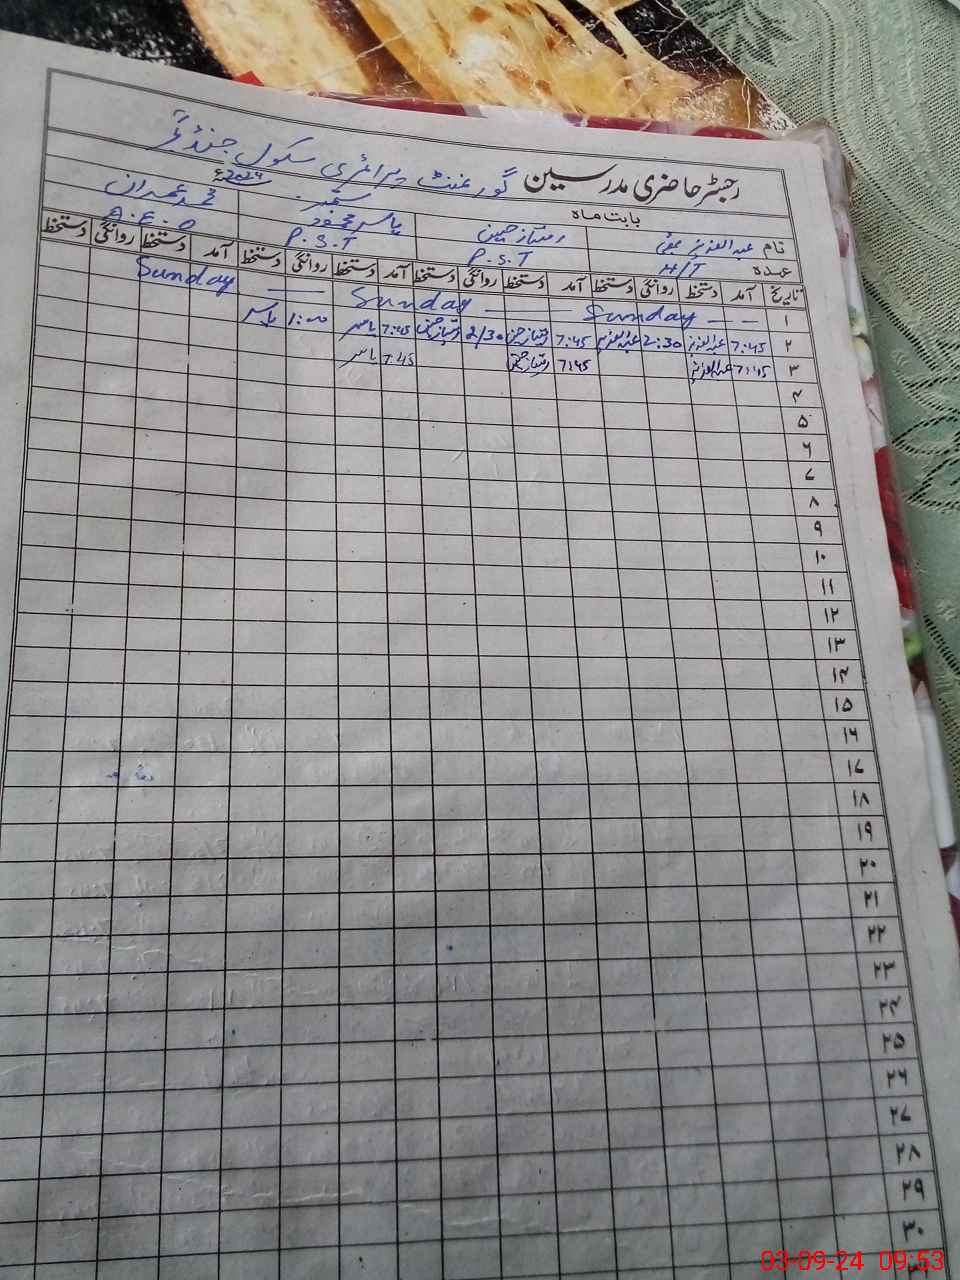 رجسٹر حاضری مدرسین گورنمنٹ پرائمری سکول جنڈ
بابت ماہ ستمبر 2024ء
نام عبدالعزیز ممتاز حسین یاسر محمود محمد عمران
عہدہ H/T P.S.T P.S.T A.E.O
تاریخ آمد دستخط روانگی دستخط آمد دستخط روانگی دستخط آمد دستخط روانگی دستخط آمد دستخط روانگی دستخط
۱ Sunday Sunday Sunday
۲ 7:45 عبدالعزیز 2:30 عبدالعزیز 7:45 ممتاز حسین 2/30 ممتاز حسین 7:45 یاسر 1:00 یاسر
۳ 7:45 عبدالعزیز 7:45 ممتاز حسین 7:45 یاسر
۴
۵
۶
۷
۸
۹
۱۰
۱۱
۱۲
۱۳
۱۴
۱۵
۱۶
۱۷
۱۸
۱۹
۲۰
۲۱
۲۲
۲۳
۲۴
۲۵
۲۶
۲۷
۲۸
۲۹
۳۰
03-09-24 09:53